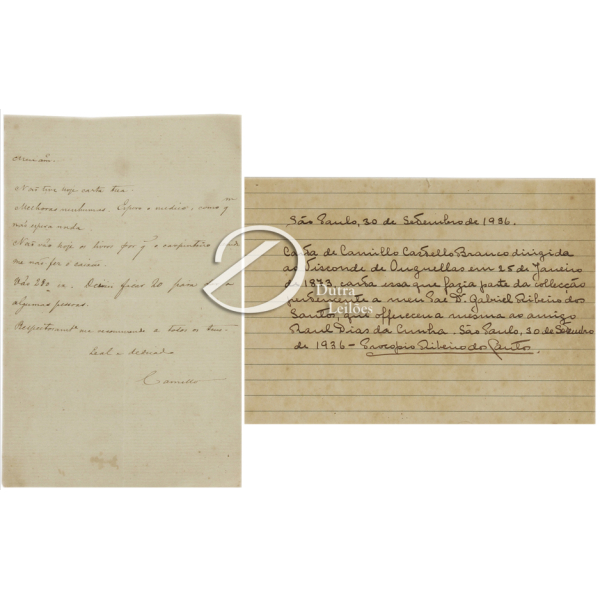 Não tive hoje carta tua.
Melhoras nenhumas. Espero o medico, como qᵐ
não espera nada.
Não vão hoje os livros por q̃ o carpinteiro
me não fez o caixão.
Vão 280
algumas pessoas.
a todos os teus.
Leal e dedicado
Camillo
São Paulo, 30 de Setembro de 1936.
Carta de Camillo Castello Branco dirigida
ao Visconde de Ouguellas em 25 de Janeiro
de 1873, carta essa que fazia parte da collecção
pertencente a meu Pae D.ʳ Gabriel Ribeiro dos
Santos, que offereceu a mesma ao amigo
Raul Dias da Cunha. São Paulo, 30 de Setembro
de 1936 - Procopio Ribeiro dos Santos.
Dutra
Leilões